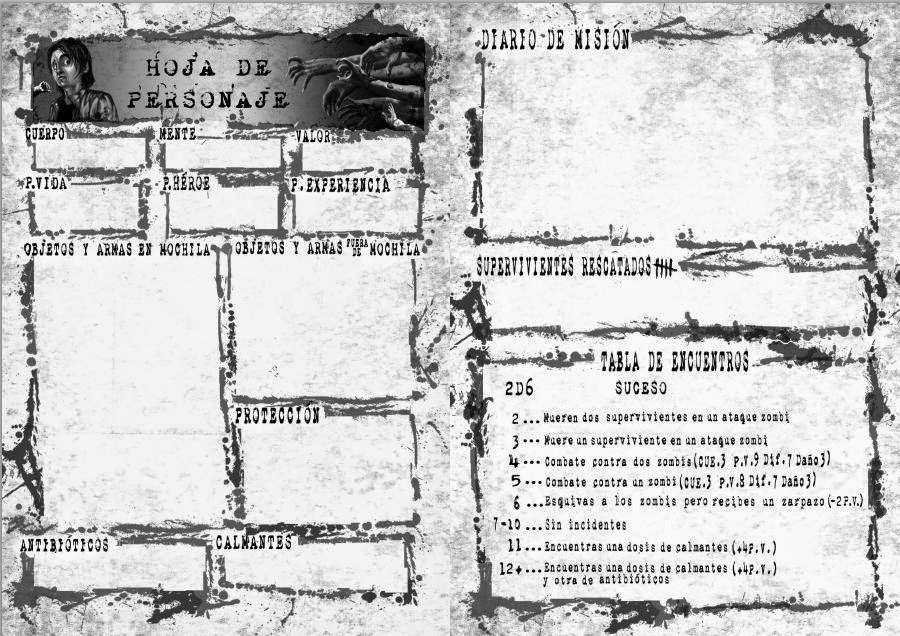 HOJA DE
PERSONAJE
CUERPO
MENTE
VALOR
P.VIDA
P.HÉROE
P.EXPERIENCIA
OBJETOS Y ARMAS EN MOCHILA
OBJETOS Y ARMAS FUERA DE MOCHILA
PROTECCIÓN
ANTIBIÓTICOS
CALMANTES
DIARIO DE MISIÓN
SUPERVIVIENTES RESCATADOS
TABLA DE ENCUENTROS
2D6 SUCESO
2 ... Mueren dos supervivientes en un ataque zombi
3 ... Muere un superviviente en un ataque zombi
4 ... Combate contra dos zombis (CUE.3 P.V.9 Dif.7 Daño3)
5 ... Combate contra un zombi (CUE.3 P.V.8 Dif.7 Daño3)
6 ... Esquivas a los zombis pero recibes un zarpazo (-2P.V.)
7-10 ... Sin incidentes
11 ... Encuentras una dosis de calmantes (+4P.V.)
12+ ... Encuentras una dosis de calmantes (+4P.V.)
y otra de antibióticos